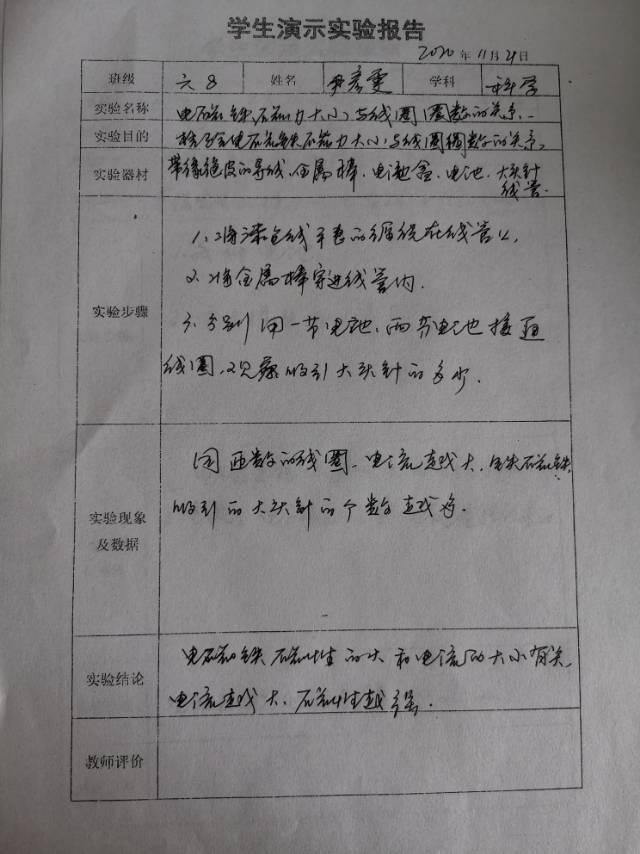 学生演示实验报告
2020年11月21日
班级 六8 姓名 尹彦雯 学科 科学
实验名称 电磁铁磁力大小与线圈圈数的关系.
实验目的 电磁铁磁力大小与线圈圈数的关系.
实验器材 带绝缘皮的导线、金属棒、电池盒、电池、大头针
线管.
实验步骤
1、将漆包线平表的缠绕在线管上,
2、将金属棒穿进线管内.
3、分别用一节电池、两节电池接通
线圈,观察吸引大头针的多少.
实验现象
及数据
同匝数的线圈、电流越大,电磁铁
吸引的大头针的个数越多.
实验结论
电磁铁磁性的大和电流的大小有关,
电流越大、磁性越强.
教师评价